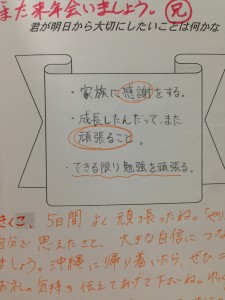 また来年会いましょう。兄
君が明日から大切にしたいことは何かな
・家族に感謝をする。
・成長したんだって、また
頑張ること。
・できる限り勉強を頑張る。
きくこ、5日間 よく頑張ったね。「やり
自分で 思えたこと、大きな自信につな
ましょう。沖縄に帰り着いたら、ぜひ
お礼の気持ち 伝えてあげて下さいね。